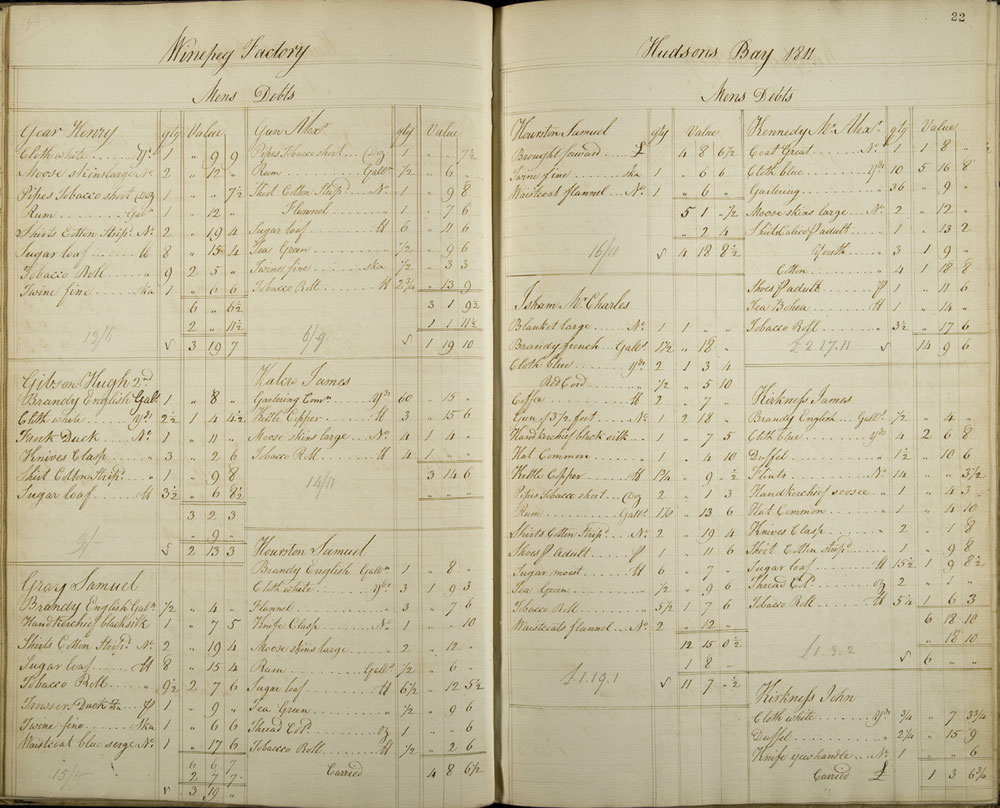 22
Winepeg Factory
Mens Debts
Gear Henry qty Value
Cloth white Yd. 1 " 9 9
Moose skins large No. 2 " 12 "
Pipes Tobacco short Doz 1 " " 7½
Rum Galn. 1 " 12 "
Shirts Cotton Strip. No. 2 " 19 4
Sugar loaf lb 8 " 15 4
Tobacco Roll " 9 2 5 "
Twine fine Ska 1 " 6 6
6 " 6½
2 " 11½
13/6 3 19 7
Gibson Hugh 2nd
Brandy English Galn. 1 " 8 "
Cloth white Yds. 2½ 1 4 4½
Duck No. 1 " 11 "
Knives Clasp " 3 " 2 6
Shirt Cotton Strip. 1 " 9 8
Sugar loaf lb 3½ " 6 8½
3 2 3
" 9 "
9/- 2 13 3
Gray Samuel
Brandy English Galn. ½ " 4 "
Handkerchief black silk 1 " 7 5
Shirts Cotton Strip. No. 2 " 19 4
Sugar loaf lb 8 " 15 4
Tobacco Roll " 9½ 2 7 6
Trowsers Duck 1 " 9 "
Twine fine Ska 1 " 6 6
Waistcoat blue serge No. 1 " 17 6
6 6 7
2 7 7
3 19 "
Gun Alexr. qty Value
Pipes Tobacco short Doz 1 " " 7½
Rum Galn. ½ " 6 "
Shirt Cotton Strip. No. 1 " 9 8
Flannel 1 " 7 6
Sugar loaf lb 6 " 11 6
Tea Green ½ " 9 6
Twine fine Ska ½ " 3 3
Tobacco Roll lb 2¾ " 13 9
3 1 9½
1 1 11½
6/9 1 19 10
James
Gartering Comn. Yds 60 " 15 "
Kettle Copper lb 3 " 15 6
Moose skins large No. 4 1 4 "
Tobacco Roll lb 4 1 " "
14/11 3 14 6
Hourston Samuel
Brandy English Galn. 1 " 8 "
Cloth white Yds. 3 1 9 3
Flannel " 3 " 7 6
Knife Clasp No. 1 " " 10
Moose skins large " 2 " 12 "
Rum Galn. ½ " 6 "
Sugar loaf lb 6½ " 12 5½
Tea Green " ½ " 9 6
Thread Cold. Oz 1 " " 6
Tobacco Roll lb ½ " 2 6
Carried 4 8 6½
Hudsons Bay 1811
Mens Debts
Hourston Samuel qty Value
Brought forward £ 4 8 6½
Twine fine Ska 1 " 6 6
Waistcoat flannel No. 1 " 6 "
5 1 " ½
" 2 4
16/11 4 18 8½
Isham Mr Charles
Blanket large No. 1 1 " "
Brandy french Galn. 1½ " 18 "
Cloth blue Yds. 2 1 3 4
Red Cord ½ " 5 10
Coffee lb 2 " 7 "
Gun of 3½ feet No. 1 2 18 "
Handkerchief black silk 1 " 7 5
Hat Common " 1 " 4 10
Kettle Copper lb 1¾ " 9 " ½
Pipes Tobacco short Doz 2 " 1 3
Rum Galn. " 13 6
Shirts Cotton Strip. No. 2 " 19 4
Shoes adult 1 " 11 6
Sugar moist lb 6 " 7 "
Tea Green " ½ " 9 6
Tobacco Roll " 5½ 1 7 6
Waistcoats flannel No. 2 " 12 "
12 15 0½
1 8 "
£1.19.1 11 7 " ½
Kennedy Mr Alexr. qty Value
Coat Great No. 1 1 8 "
Cloth blue Yds 10 5 16 8
Gartering " 36 " 9 "
Moose skins large No. 2 " 12 "
Shirt Calico adult 1 " 13 2
Youth 3 1 9 "
Cotton 4 1 18 8
Shoes adult 1 " 11 6
Tea Bohea lb 1 " 14 "
Tobacco Roll " 3½ " 17 6
£2.17.11 14 9 6
Kirkness James
Brandy English Galn. ½ " 4 "
Cloth blue Yds 4 2 6 8
Duffel " 1½ " 10 6
Flints No. 14 " " 3½
Handkerchief soosee " 1 " 4 3
Hat Common " 1 " 4 10
Knives Clasp " 2 " 1 8
Shirt Cotton Strip. " 1 " 9 8
Sugar loaf lb 15½ 1 9 8½
Thread Cold. Oz 2 " 1 "
Tobacco Roll lb 5¼ 1 6 3
6 18 10
" 18 10
£1.3.2 6 " "
Kirkness John
Cloth white Yds ¾ " 7 3¾
Duffel " 2¼ " 15 9
Knife yew handle No. 1 " " 6
Carried £ 1 3 6¾